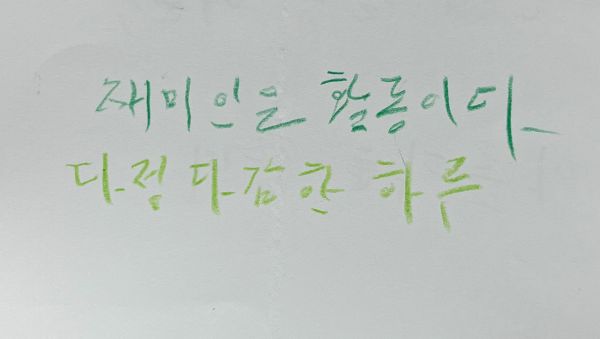 재미인은 활동이다
다정다감한 하루